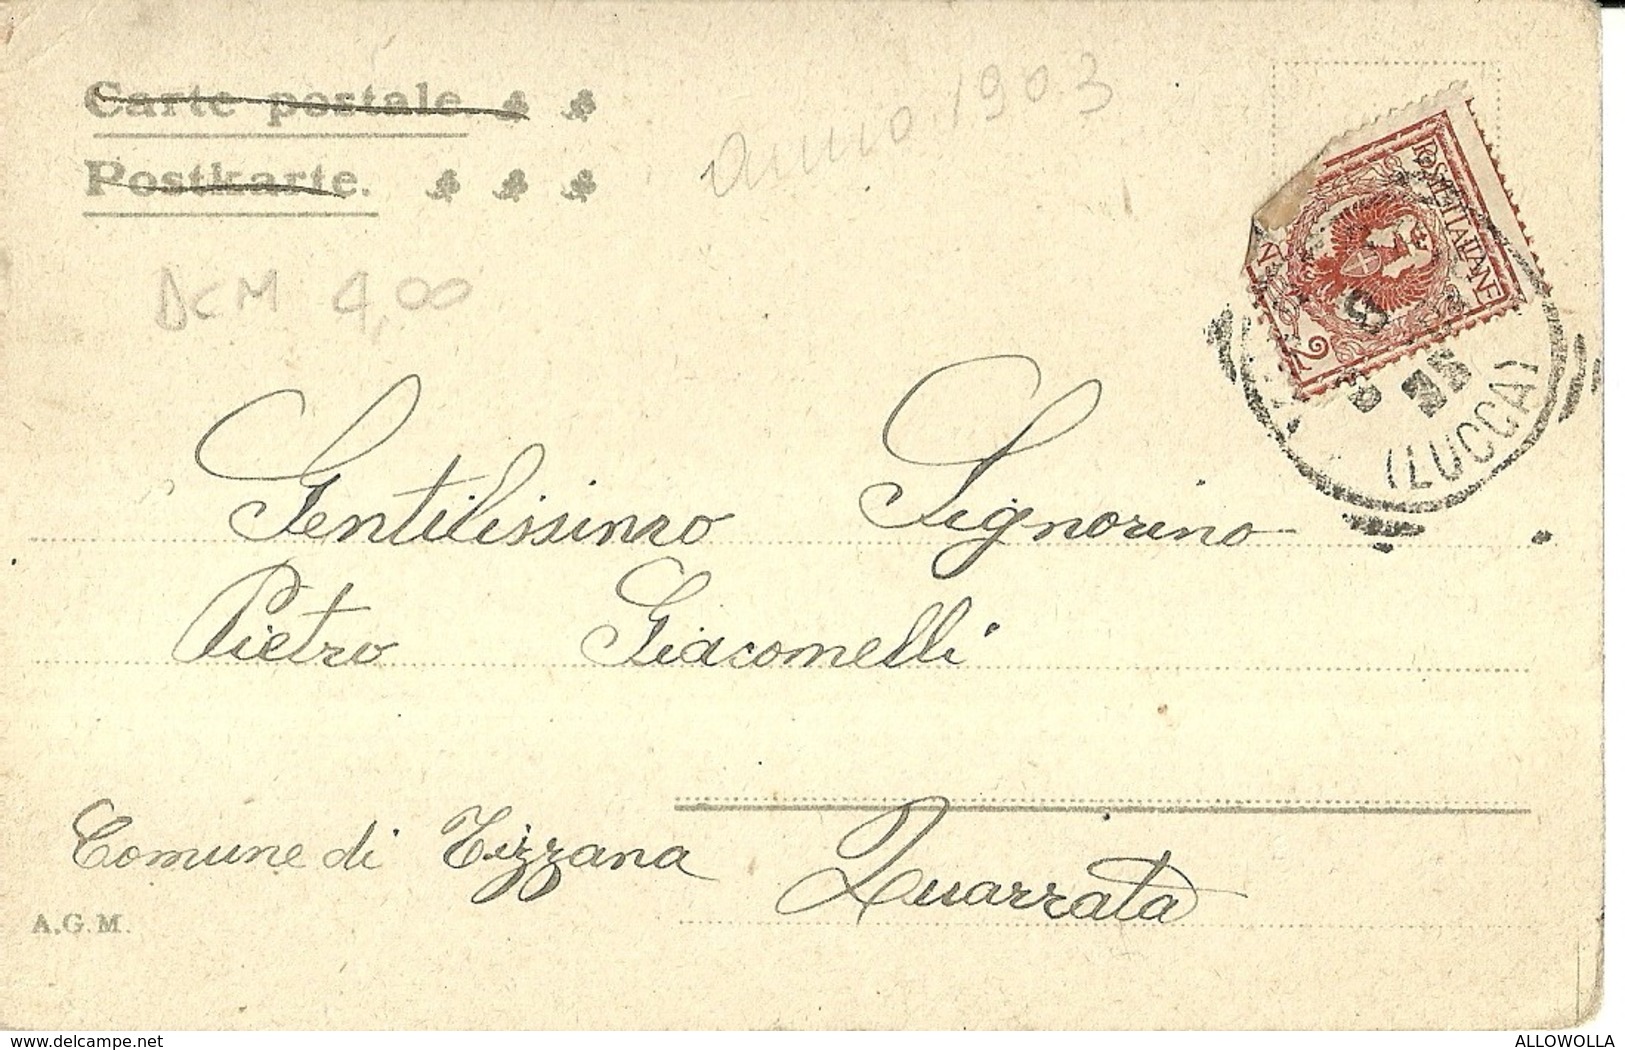 Carte postale
Postkarte.
anno 1903
DCM 4,00
POSTE ITALIANE
2
(LUCCA)
Gentilissimo Signorino
Pietro Giacomelli
Comune di Tizzana Quarrata
A.G.M.
www.delcampe.net
ALLOWOLLA